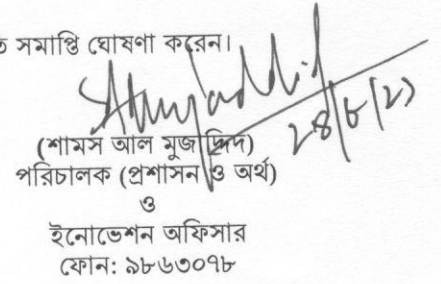 ত সমাপ্তি ঘোষণা করেন।
(শামস আল মুজাদ্দিদ)
পরিচালক (প্রশাসন ও অর্থ)
ও
ইনোভেশন অফিসার
ফোন: ৯৮৬৩০৭৮